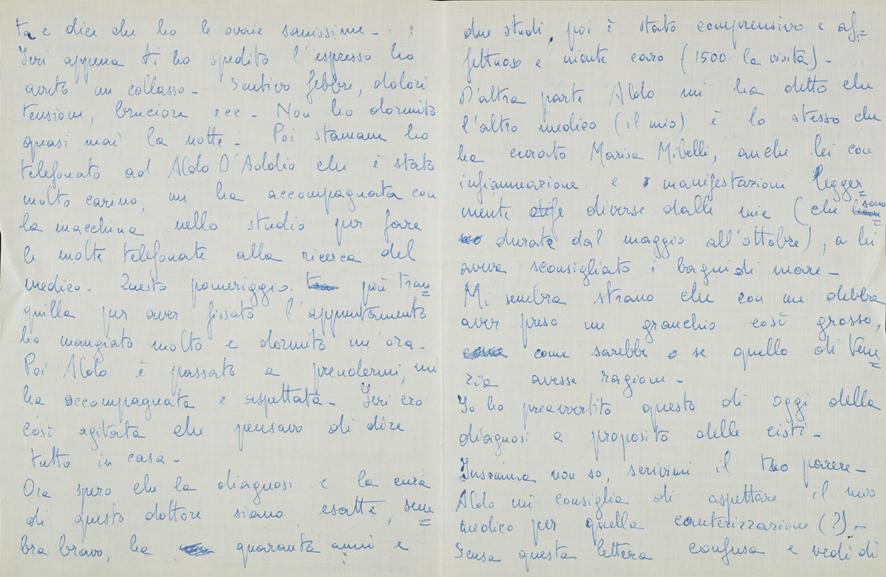 ta e dice che ho le ovaie sanissime -
Ieri appena ti ho spedito l'espresso ho
avuto un collasso - Sentivo febbre, dolori
tensioni, bruciore ecc - Non ho dormito
quasi mai la notte - Poi stamane ho
telefonato ad Aldo D'Addio che è stato
molto carino, mi ha accompagnata con
la macchina nello studio per fare
le molte telefonate alla ricerca del
medico - Questo pomeriggio più tran=
quilla per aver fissato l'appuntamento
ho mangiato molto e dormito un'ora -
Poi Aldo è passato a prendermi, mi
ha accompagnata e aspettata - Ieri ero
così agitata che pensavo di dire
tutto in casa -
Ora spero che la diagnosi e la cura
di questo dottore siano esatte, sem=
bra bravo, ha quaranta anni e
due studi, poi è stato comprensivo e af=
fettuoso e niente caro (1500 la visita) -
D'altra parte Aldo mi ha detto che
l'altro medico (il mio) è lo stesso che
ha curato Marisa Mibelli, anche lei con
infiammazione e manifestazioni legger
mente diverse dalle mie (che sono
durate dal maggio all'ottobre), a lei
aveva sconsigliato i bagni di mare -
Mi sembra strano che con me debba
aver preso un granchio così grosso,
come sarebbe se quello di Vene
zia avesse ragione -
Io ho preavvertito questo di oggi della
diagnosi a proposito delle cisti -
Insomma non so, scrivimi il tuo parere -
Aldo mi consiglia di aspettare il mio
medico per quella cauterizzazione (?) -
Scusa questa lettera confusa e vedi di